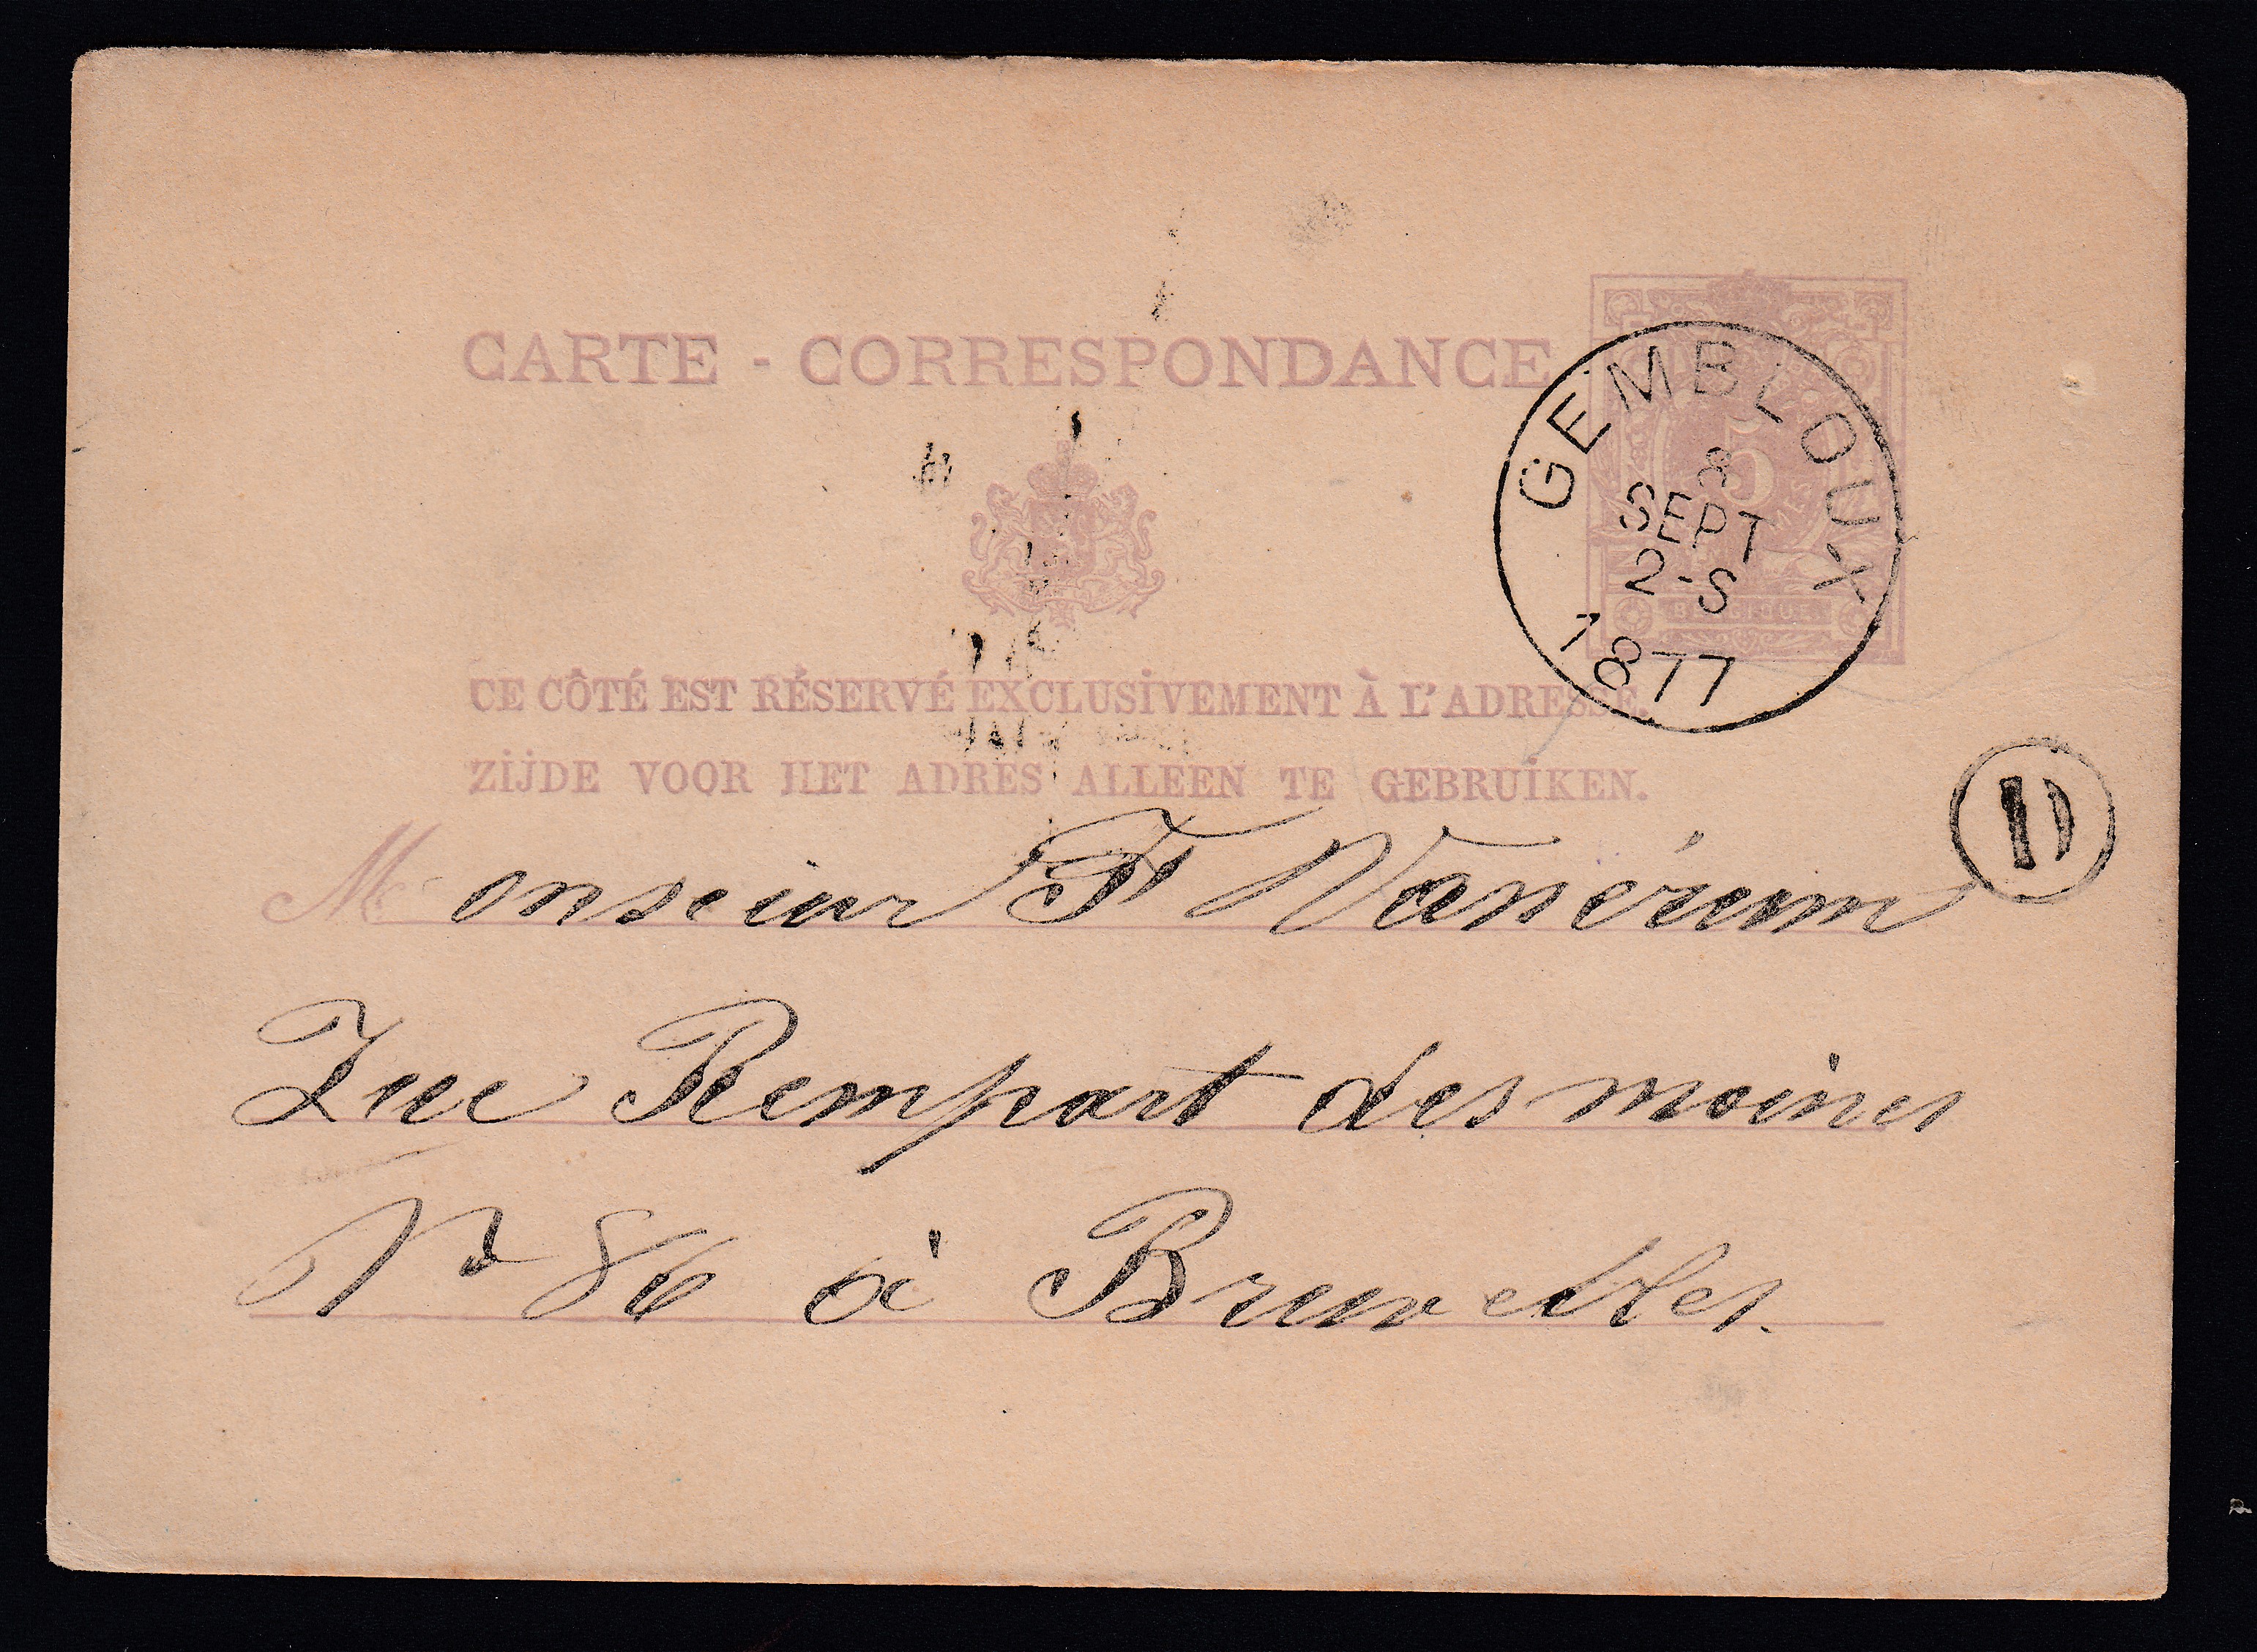 CARTE - CORRESPONDANCE
5
BELGIQUE
GEMBLOUX
8
SEPT
2-S
1877
CE CÔTÉ EST RÉSERVÉ EXCLUSIVEMENT À L'ADRESSE.
ZIJDE VOOR HET ADRES ALLEEN TE GEBRUIKEN.
D
Monseiur F Vanérum
Rue Rempart des moines
No 86 à Bruxelles.